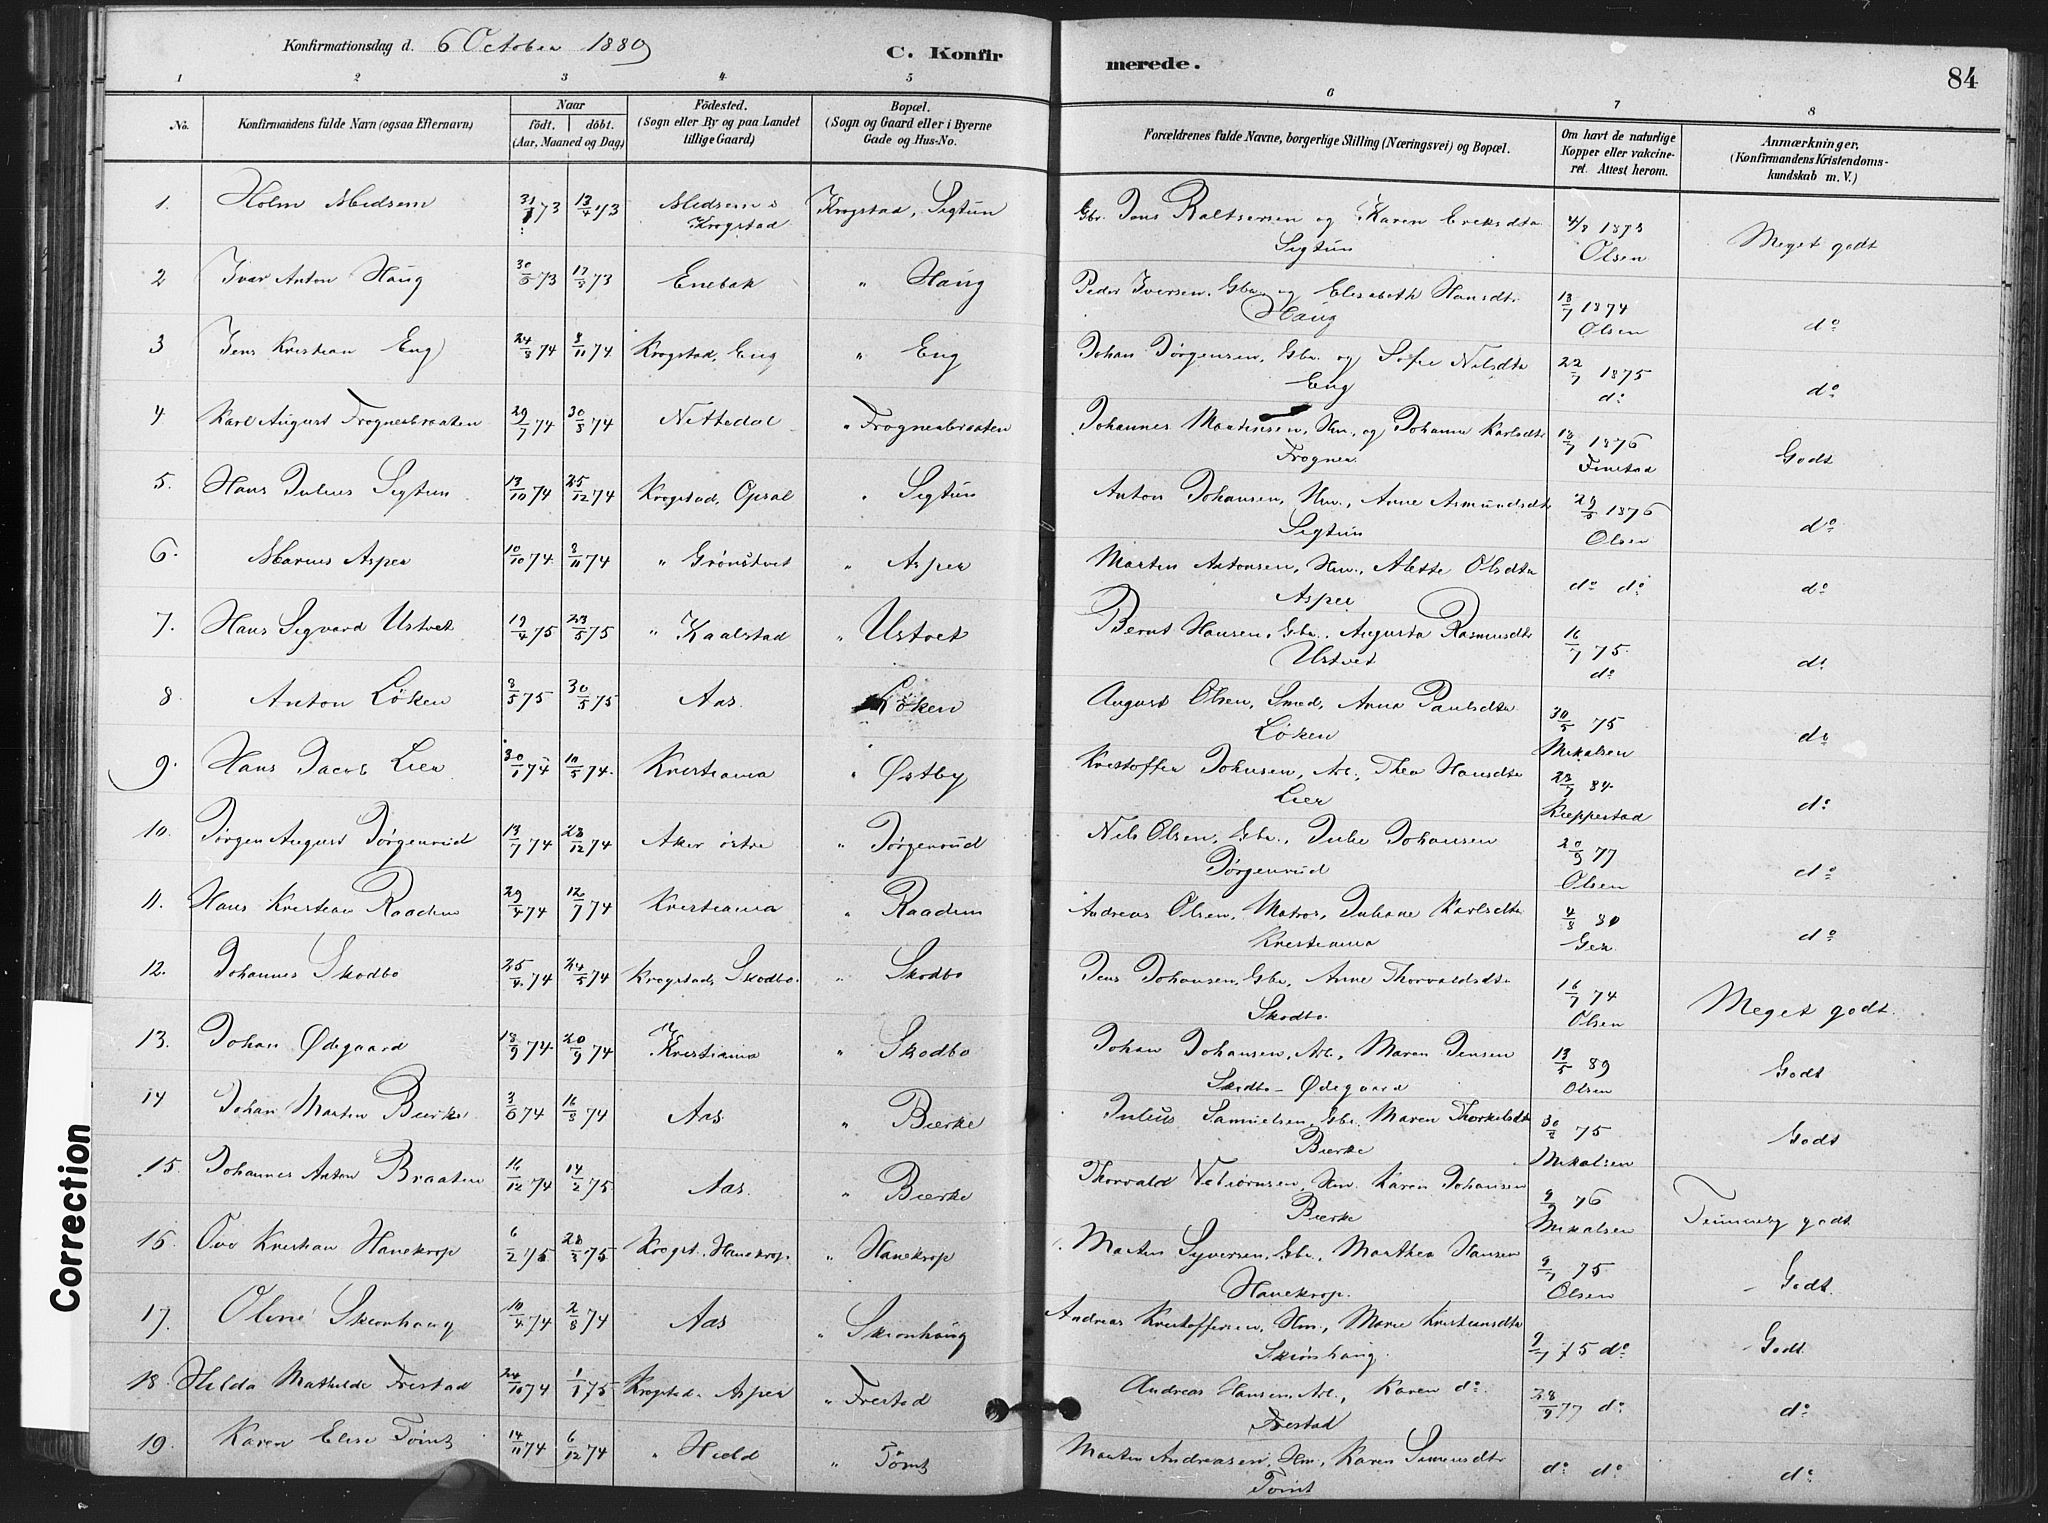 Konfirmationsdag d. 6 October 1889
C. Konfirmerede.
84
1 2 3 4 5 6 7 8
No.
Konfirmandens fulde Navn (ogsaa Efternavn)
Naar
födt. döbt.
(Aar, Maaned og Dag)
Födested.
(Sogn eller By og paa Landet
tillige Gaard)
Bopæl.
(Sogn og Gaard eller i Byerne
Gade og Hus-No.
Forældrenes fulde Navne, borgerlige Stilling (Næringsvei) og Bopæl.
Om havt de naturlige
Kopper eller vakcine-
ret. Attest herom.
Anmærkninger.
(Konfirmandens Kristendoms-
kundskab m. V.)
1. Holm Midsem 73 13/4 73 Midsem i Krogstad Krogstad, Sigtun Gbr. Jens Baltsersen og Karen Eriksdtr Sigtun 4/8 1873 Olsen Meget godt
2 Ivar Anton Haug 30/5 73 73 Enebak " Haug Peder Iversen, Gbr. og Elisabeth Hansdtr Haug 18/7 1874 Olsen do
3 Jens Kristian Eng 24/8 74 8/11 74 Krogstad, Eng " Eng Johan Jørgensen, Gbr. og Sofie Nilsdtr Eng 22/7 1875 do do
4 Karl August Frognerbraaten 29/7 74 30/8 74 Nittedal " Frognerbraaten Johannes Martinsen, Hm., og Johanne Karlsdtr Frogner 18/7 1876 Finstad Godt
5. Hans Julius Sigtun 13/10 74 25/12 74 Krogstad, Opsal " Sigtun Anton Johansen, Hm., Anne Asmundsdtr Sigtun 1876 Olsen do
6. Marius Asper 10/10 74 8/11 74 " Grønstvet " Asper Martin Antonsen, Hm., Alette Olsdtr Asper do do do
7. Hans Sigvard Ustvet 19/4 75 23/5 75 " Kaalstad " Ustvet Bernt Hansen, Gbr., Augusta Rasmusdtr Ustvet 16/7 75. do do
8. Anton Løken 3/5 75 30/5 75 Aas. Løken August Olsen, Smed, Anna Paulsdtr Løken 30/5 75 Mikalsen do
9. Hans Jacob Lier 30/1 74 10/5 74. Kristiania " Østby Kristoffer Johnsen, Arb., Thea Hansdtr Lier 23/7 84. Kieppestad do
10. Jørgen August Jørgenrud 13/7 74 28/12 74 Aker østre " Jørgenrud Nils Olsen, Gbr., Julie Johansen Jørgenrud 20/9 77 Olsen do
11. Hans Kristian Raaden 29/4 74 12/7 74 Kristiania " Raaden Andreas Olsen, Matros, Juliane Karlsdtr Kristiania 4/8 80 do
12. Johannes Skodbo 25/4 74 24/5 74 Krogstad, Skodbo. " Skodbo Jens Johansen, Gbr, Anne Thorvaldsdtr Skodbo. 16/7 74 Olsen Meget godt.
13. Johan Ødegaard 18/9 74 20/9 74 Kristiania " Skodbo Johan Johansen, Arb., Maren Jensen Skodbo - Ødegaard 13/5 89 Olsen Godt
14 Johan Martin Bierke 3/6 74 16/8 74 Aas " Bierke Julius Samuelsen, Gbr. Maren Thorkelsdtr Bierke 75 Mikalsen Godt
15. Johannes Anton Braaten 16/12 74 14/2 75 Aas. " Bierke Thorvald Hm. Karen Johansen Bierke 9/9 76 Mikalsen Temmelig godt
16. Ove Kristian Hanekrop 6/2 75 28/3 75 Krogst., Hanekrop. " Hanekrop Martin Syversen, Gbr., Marthea Hansen Hanekrop. 9/7 75 Olsen Godt.
17. Oline Skionhaug 10/4 74 2/8 74 Aas " Skionhaug Andreas Kristoffersen, Hm., Marie Kristiansdtr Skiønhaug. 9/7 75 do Godt
18. Hilda Mathilde Frestad 24/10 74 1/1 75 Krogstad. Asper " Frestad Andreas Hansen, Arb., Karen do. Frestad 28/9 77 do. do
19. Karen Elise Tømt 14/11 74 6/12 74 " " Tømt Martin Andreasen, Hm., Karen Simensdtr Tømt do do. do
Correction